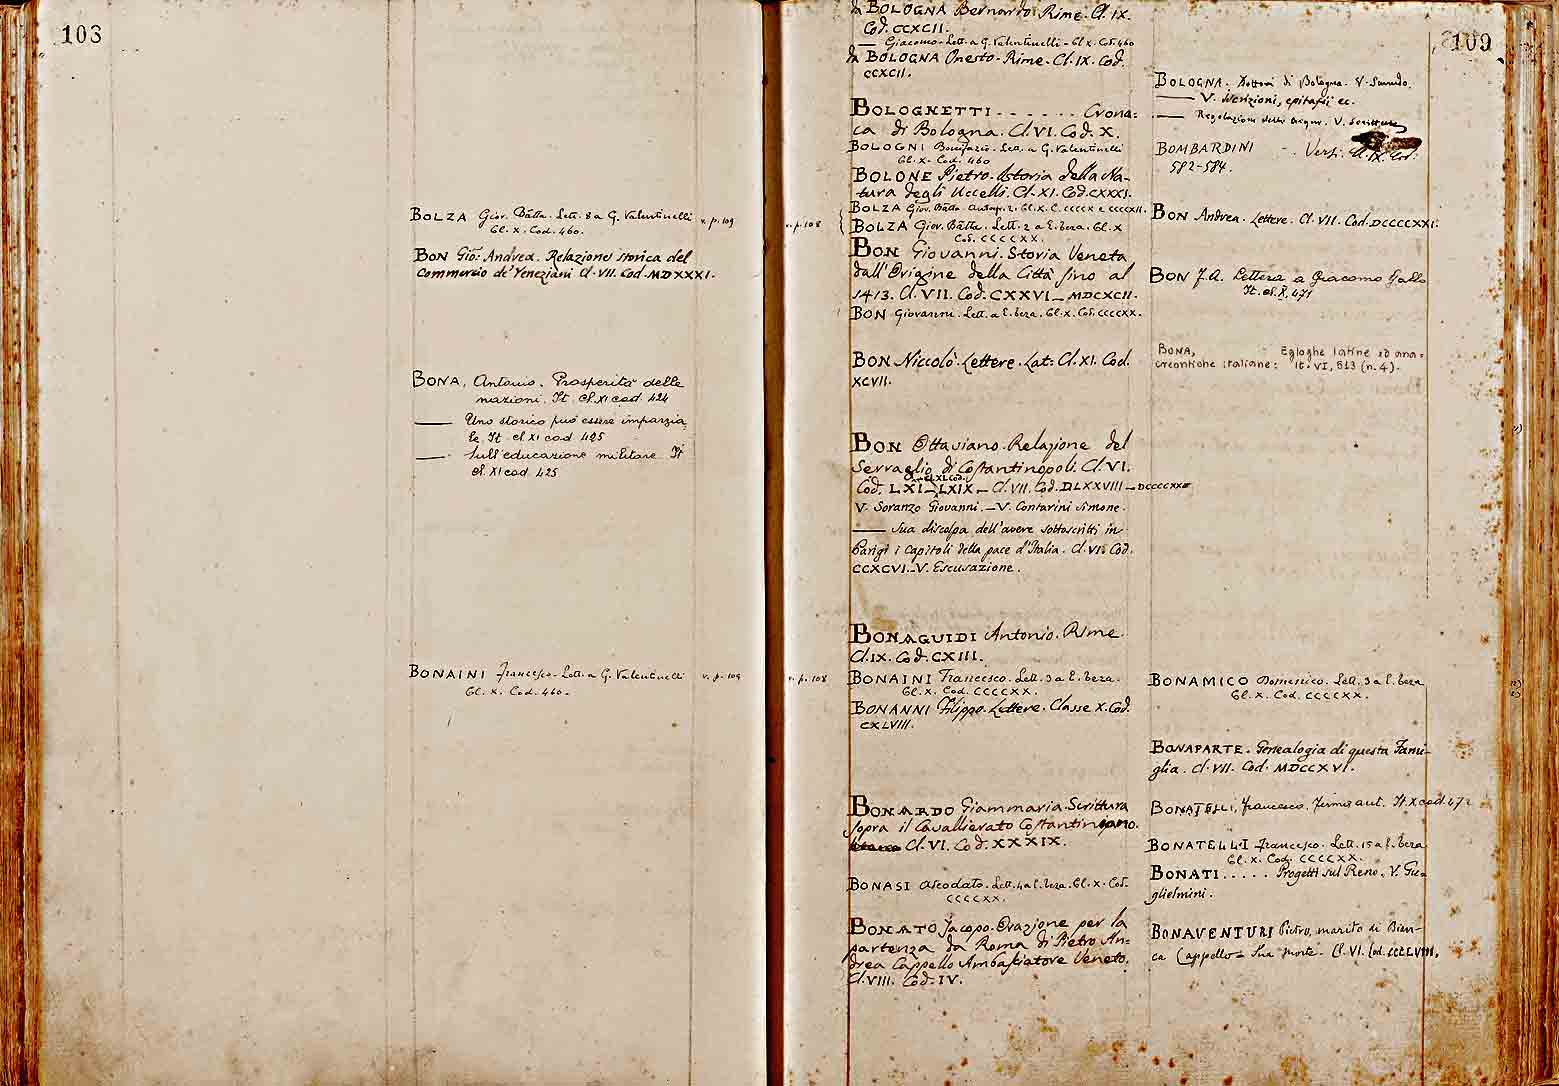 108
BOLZA Giov. Batta. Lett. 8 a G. Valentinelli v. p. 109
Cl. X. Cod. 460.
BON Gio. Andrea. Relazione storica del
Commercio de' Veneziani Cl. VII. Cod. MDXXXI.
BONA, Antonio. Prosperità delle
nazioni. It. cl. XI cod. 424
—— Uno storico può essere imparzia-
le. It. cl XI cod 425
—— Sull'educazione militare. It
cl. XI cod. 425
BONAINI Francesco. Lett. a G. Valentinelli v. p. 109
Cl. X. Cod. 460.
109
da BOLOGNA Bernardo. Rime. Cl. IX.
Cod. CCXCII.
— Giacomo. Lett. a G. Valentinelli. Cl X. Cod. 460
da BOLOGNA Onesto. Rime. Cl. IX. Cod.
CCXCII.
BOLOGNETTI . . . . . . Crona=
ca di Bologna. Cl. VI. Cod. X.
BOLOGNI Bonifazio. Lett. a G. Valentinelli
Cl. X. Cod. 460
BOLONE Pietro. Istoria della Na-
tura degli Uccelli. Cl. XI. Cod. CXXXI.
BOLZA Giov. Batta. Autogr. 2. Cl. X. C. CCCCX e CCCCXII.
v. p. 108 BOLZA Giov. Batta. Lett. 2 a E. Cl. X
Cod. CCCCXX.
BON Giovanni. Storia Veneta
dall'Origine della Città fino al
1413. Cl. VII. Cod. CXXVI — MDCXCII.
BON Giovanni. Lett. a E. Cl. X. Cod. CCCCXX.
BON Niccolò. Lettere. Lat: Cl. XI. Cod.
XCVII.
BON Ottaviano. Relazione del
Serraglio di Costantinopoli. Cl. VI.
Cod. LXI — LXIX — Cl. VII. Cod. DLXXVIII —
V. Soranzo Giovanni. — V. Contarini Simone.
—— Sua discolpa dell'avere sottoscritti in
Parigi i Capitoli della pace d'Italia. Cl. VI. Cod.
CCXCVI. — V. Escusazione.
BONAGUIDI Antonio. Rime.
Cl. IX. Cod. CXIII.
v. p. 108 BONAINI Francesco. Lett. 3 a E.
Cl. X. Cod. CCCCXX.
BONANNI Filippo. Lettere. Classe X. Cod.
CXLVIII.
BONARDO Giammaria. Scrittura
sopra il Cavallierato Costantiniano.
Cl. VI. Cod. XXXIX.
BONASI Adeodato. Lett. 4 a E. Cl. X. Cod.
CCCCXX.
BONATO Jacopo. Orazione per la
partenza da Roma di Pietro An=
drea Cappello Ambasciatore Veneto.
Cl. VIII. Cod. IV.
BOLOGNA. Dottori di Bologna. V. Sanudo.
—— V. iscrizioni, epitafii ec.
—— Regolazioni delle Acque. V. Scritture
BOMBARDINI . . Versi. Cl. IX. Cod:
582-584.
BON Andrea. Lettere. Cl. VII. Cod. DCCCCXXI.
BON F. A. Lettera a Giacomo Gallo
It. cl. X. 471
BONA, Egloghe latine ed ana=
creontiche italiane: It. VI, 513 (n. 4).
BONAMICO Domenico. Lett. 3 a E.
Cl. X. Cod. CCCCXX.
BONAPARTE. Genealogia di questa Fami-
glia. Cl. VII. Cod. MDCCXVI.
BONATELLI, Francesco, Firma aut. It. X cod. 472
BONATELLI Francesco. Lett. 15 a E.
Cl. X. Cod. CCCCXX.
BONATI . . . . . Progetti sul Reno. V. Gu-
glielmini.
BONAVENTURI Pietro, marito di Bian-
ca Cappello. Sua morte. Cl. VI. Cod.